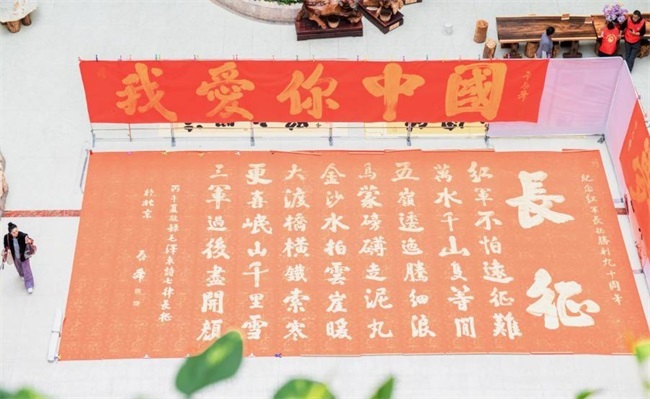 我愛你中國
紀念紅軍長征勝利九十周年
長征
紅軍不怕遠征難
萬水千山只等閒
五嶺逶迤騰細浪
烏蒙磅礴走泥丸
金沙水拍雲崖暖
大渡橋橫鐵索寒
更喜岷山千里雪
三軍過後盡開顏
丙午夏敬録毛澤東詩七律長征
於北京